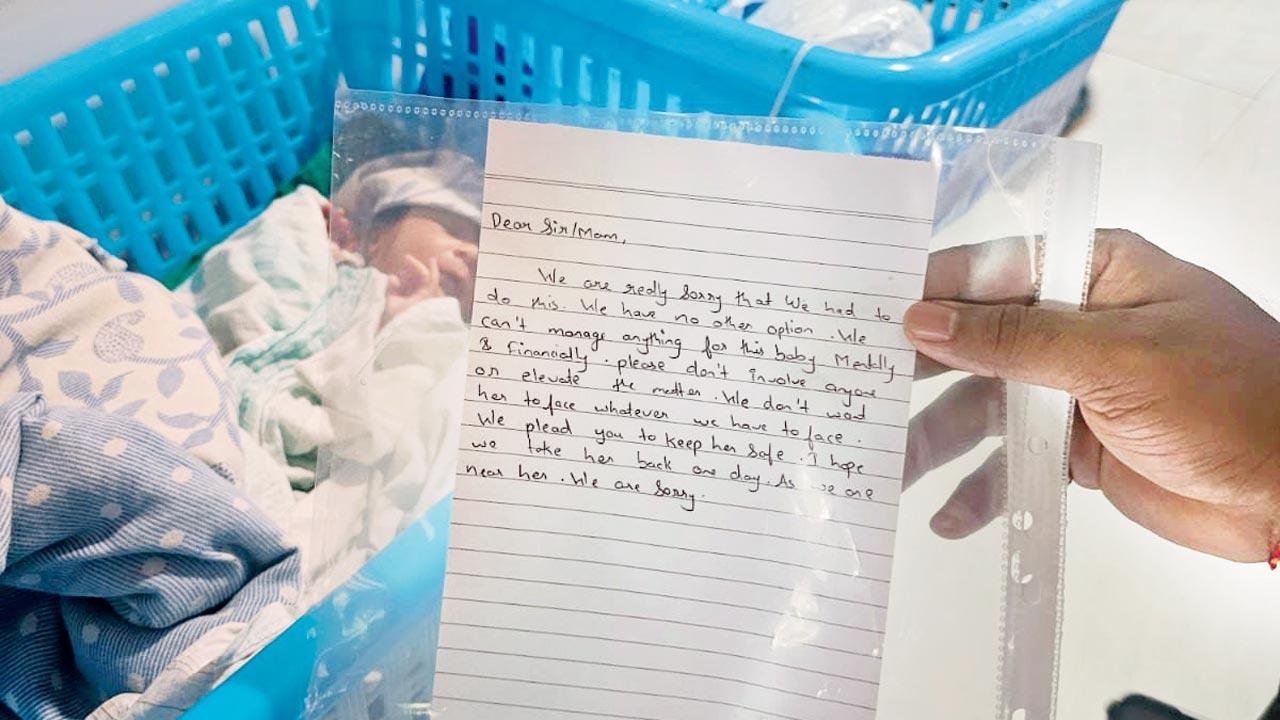 Dear Sir/Mam,
We are realy sorry that We had to
do this. We have no other option. We
can't manage anything for this baby Mentally
& Financially. please don't involve anyone
or elevate the matter. We don't wad
her to face whatever we have to face.
We plead you to keep her safe. I hope
we take her back one day. As we are
near her. We are sorry.